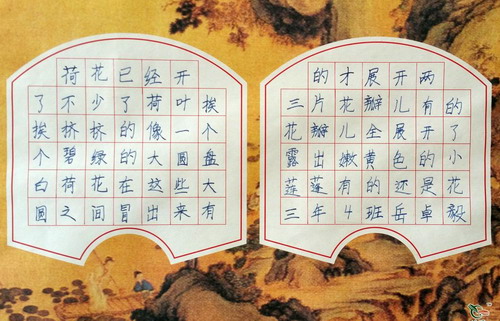 荷花已经开
了不少了荷叶挨
挨桥桥的像一个
个碧绿的大圆盘
白荷花在这些大
圆之间冒出来有
的才展开两
三片花瓣儿有的
花瓣儿全展开了
露出嫩黄色的小
莲莲有的还是花
三年4班岳卓毅